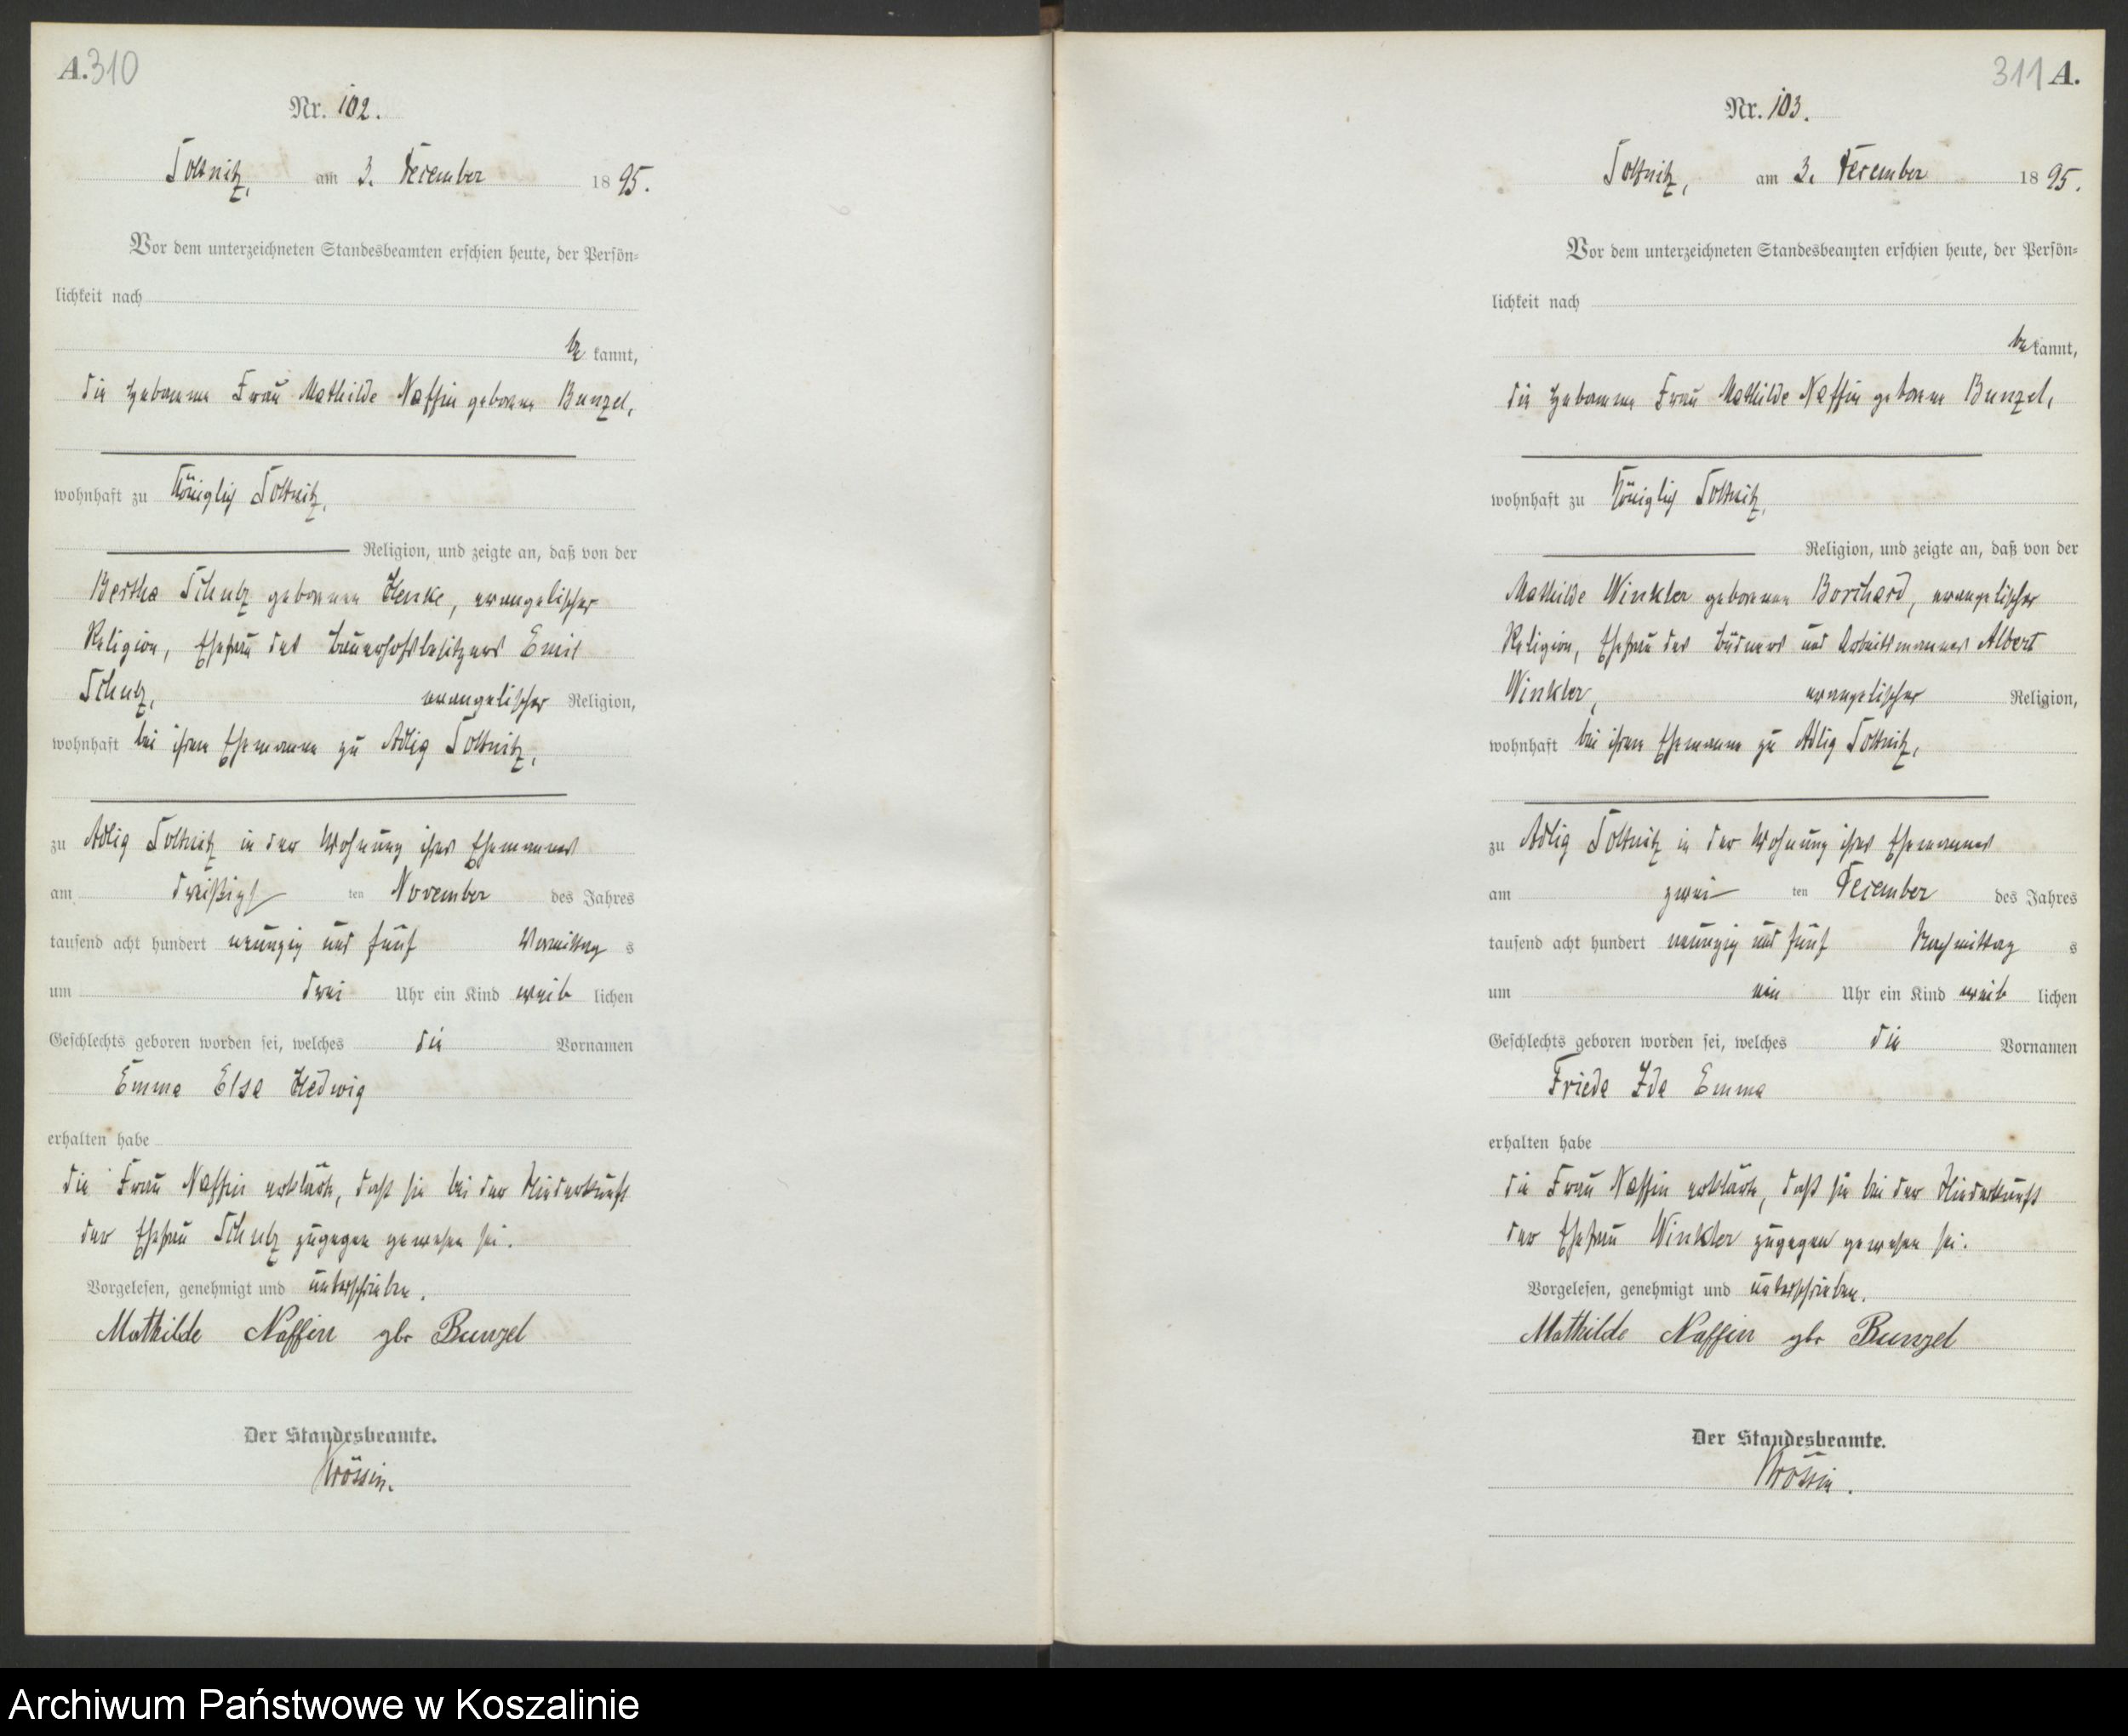 A. 310
Nr. 102.
Soltnitz, am 3. December 1895.
Vor dem unterzeichneten Standesbeamten erschien heute, der Persön-
lichkeit nach
be kannt,
die Hebamme Frau Mathilde Naffin geborene Bunzel,
wohnhaft zu Königlich Soltnitz,
Religion, und zeigte an, daß von der
Bertha Schulz geborenen Henke, evangelischer
Religion, Ehefrau des Bauerhofsbesitzers Emil
Schulz, evangelischer Religion,
wohnhaft bei ihrem Ehemanne zu Adlig Soltnitz,
zu Adlig Soltnitz in der Wohnung ihres Ehemannes
am dreißigs ten November des Jahres
tausend acht hundert neunzig und fünf Vormittag s
um drei Uhr ein Kind weib lichen
Geschlechts geboren worden sei, welches die Vornamen
Emma Elsa Hedwig
erhalten habe
die Frau Naffin erklärte, daß sie bei der Niederkunft
der Ehefrau Schulz zugegen gewesen sei.
Vorgelesen, genehmigt und unterschrieben.
Mathilde Naffin gbr Bunzel
Der Standesbeamte.
Krössin.
311 A.
Nr. 103.
Soltnitz, am 3. December 1895.
Vor dem unterzeichneten Standesbeamten erschien heute, der Persön-
lichkeit nach
be kannt,
die Hebamme Frau Mathilde Naffin geborene Bunzel,
wohnhaft zu Königlich Soltnitz,
Religion, und zeigte an, daß von der
Mathilde Winkler geborenen Borchard, evangelischer
Religion, Ehefrau des Büdners und Arbeitsmannes Albert
Winkler, evangelischer Religion,
wohnhaft bei ihrem Ehemanne zu Adlig Soltnitz,
zu Adlig Soltnitz in der Wohnung ihres Ehemannes
am zwei ten December des Jahres
tausend acht hundert neunzig und fünf Nachmittag s
um ein Uhr ein Kind weib lichen
Geschlechts geboren worden sei, welches die Vornamen
Frieda Ida Emma
erhalten habe
die Frau Naffin erklärte, daß sie bei der Niederkunft
der Ehefrau Winkler zugegen gewesen sei.
Vorgelesen, genehmigt und unterschrieben.
Mathilde Naffin gbr Bunzel
Der Standesbeamte.
Krössin.
Archiwum Państwowe w Koszalinie